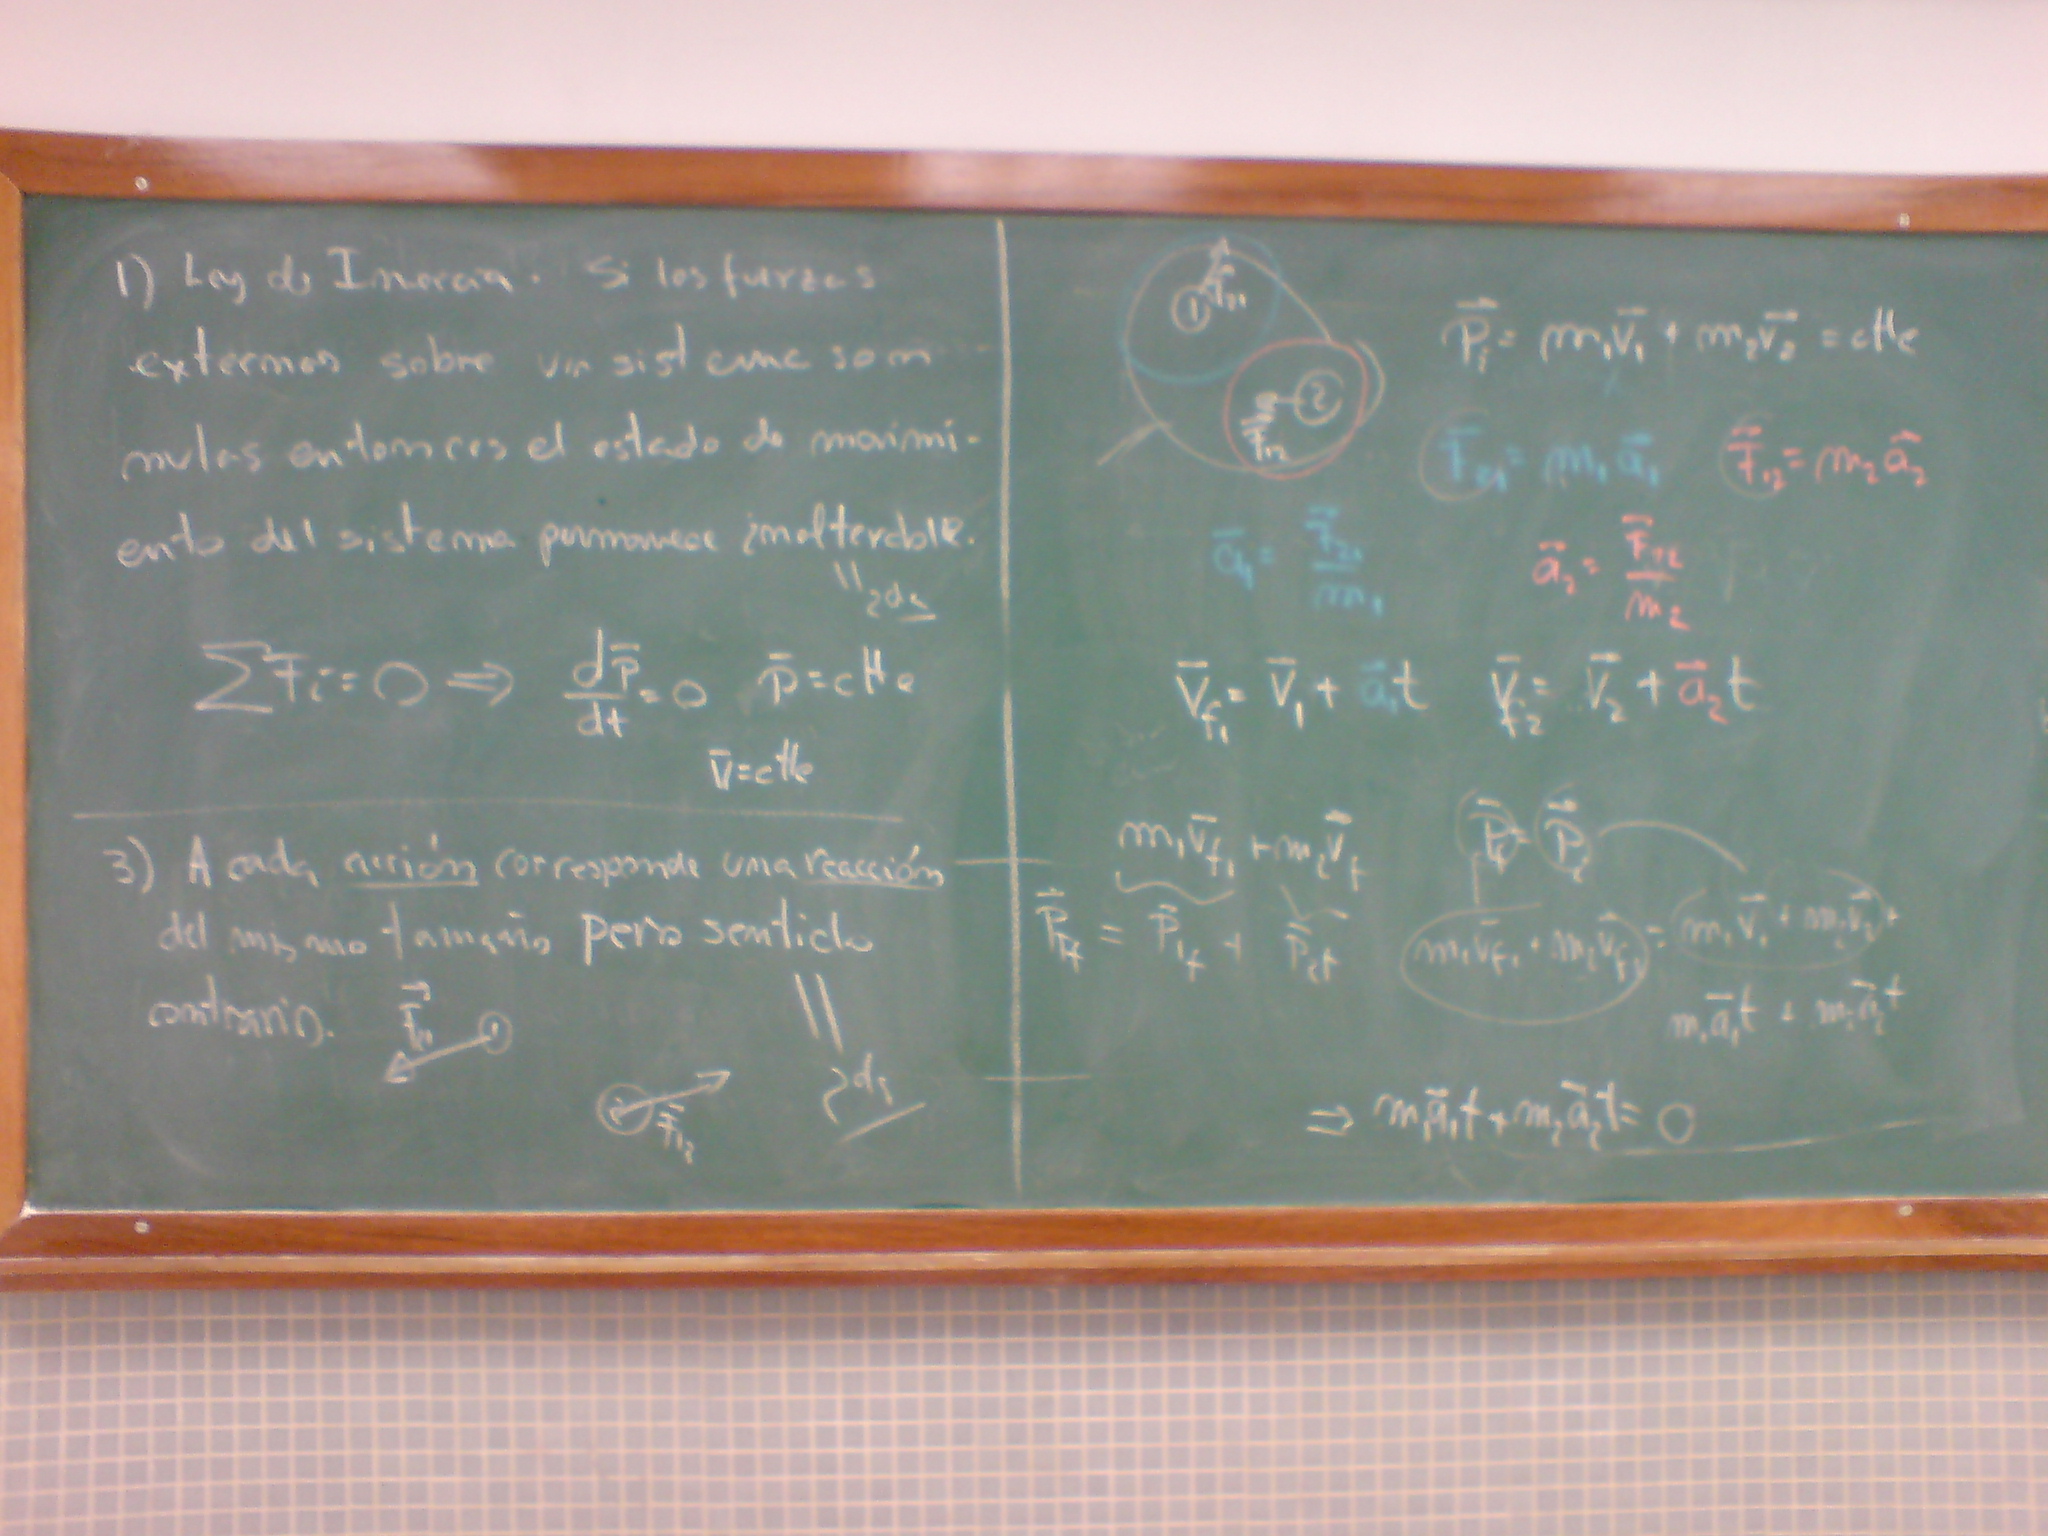 1) Ley de Inercia. Si las fuerzas
externas sobre un sistema son
nulas entonces el estado de movimi-
ento del sistema permanece inalterable.
∑F̄i=0 ⇒ dp̄/dt=0 p̄=ctte
v̄=ctte
3) A cada acción corresponde una reacción
del mismo tamaño pero sentido
contrario.
F⃗21 1
2 F̄12
1 F⃗21
2 F⃗12
P⃗i = m1v⃗1 + m2v⃗2 = ctte
F⃗21 = m1a⃗1 F⃗12 = m2a⃗2
ā1 = F⃗21/m1 ā2 = F⃗12/m2
V̄f1 = V̄1 + ā1t V̄f2 = V̄2 + ā2t
m1v̄f1 + m2v̄f
P⃗Tf = P̄1f + P̄2f
P̄f = P⃗i
m1v̄f1 + m2v̄f2 = m1v̄1 + m2v̄2 +
m1ā1t + m2ā2t
⇒ m1ā1t + m2ā2t = 0